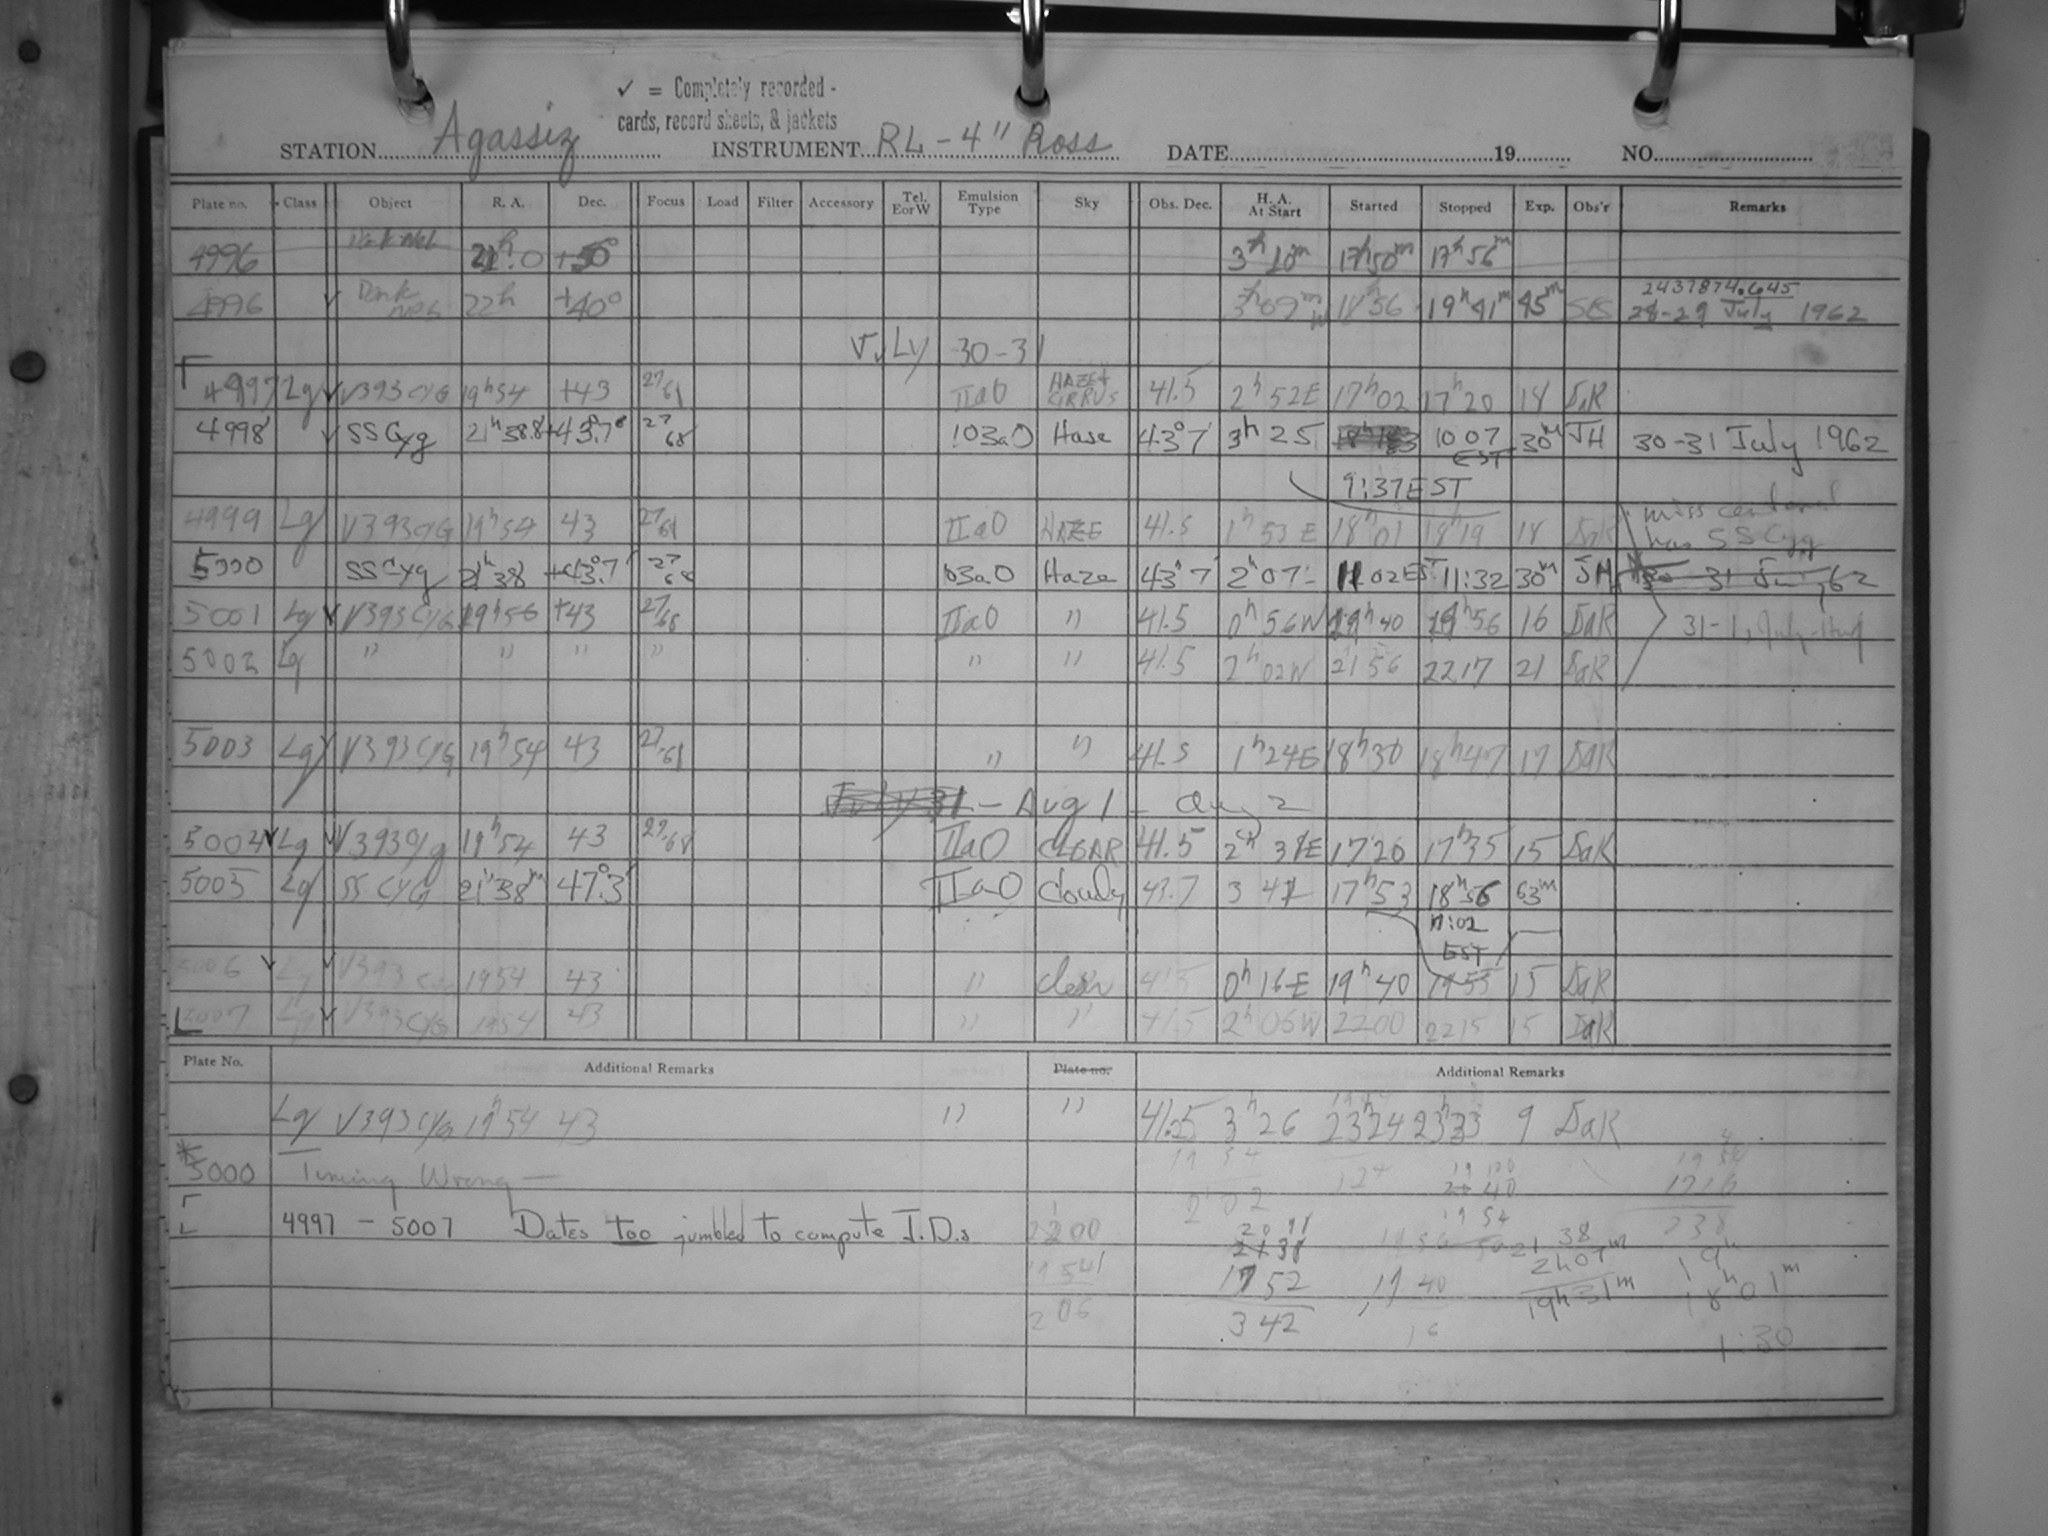 ✓ = Completely recorded -
cards, record sheets, & jackets
STATION Agassiz INSTRUMENT RL - 4" Ross DATE 19 NO.
Plate no. Class Object R. A. Dec. Focus Load Filter Accessory Tel. E or W Emulsion Type Sky Obs. Dec. H. A. At Start Started Stopped Exp. Obs'r Remarks
4996 21h.0 +50° 3h 10m 17h50m 17h 56m
2437874.645
4996 ✓ Dark Neb 22h +40° 3h 09m W 18h56 19h 41m 45m 28-29 July 1962
JuLy 30-31
4997 Lg ✓ V393 CYG 19h54 +43 27/61 IIaO HAZE+ CIRRUS 41.5 2h 52E 17h02 17h20 18 DaR
4998 ✓ SS Cyg 21h38.8 +43°.7 27/68 103aO Haze 43°7 3h 25 10 07 EST 30m JH 30-31 July 1962
9:37 EST
4999 Lg V393 CYG 19h54 43 27/61 IIaO HAZE 41.5 1h 53 E 18h01 18h19 18 DaR miss centered has SS Cyg
5000 SS Cyg 21h38 +43°.7 27/68 103aO Haze 43°7 2h 07 11 02 EST 11:32 30m JH 30-31 62
5001 Lg ✓ V393 CYG 19h56 +43 27/68 IIaO " 41.5 0h 56W 19h40 19h56 16 DaR 31-1, July-Aug
5002 Lg " " " " " " 41.5 2h 02W 21 56 22 17 21 DaR
5003 Lg ✓ V393 CYG 19h54 43 27/61 " " 41.5 1h24E 18h30 18h47 17 DaR
July 31 - Aug 1 - Aug 2
5004 ✓ Lg ✓ V393 Cyg 19h54 43 27/68 IIaO CLEAR 41.5 17 20 17h35 15 DaR
5005 Lg SS CYG 21h38m 47°.3 IIaO Cloudy 43.7 3 42 17h53 18h56 63m
11:02
EST
5006 ✓ Lg ✓ V393 19 54 43 " clear 41.5 0h 16E 19h 40 19 55 15 DaR
5007 Lg ✓ V393 CYG 19 54 43 " " 41.5 2h 06W 22 00 22 15 15 DaR
Plate No. Additional Remarks Plate no. Additional Remarks
Lg V393 CYG 19h54 43 " " 41.5 3h 26 23h24 23h33 9 DaR
*5000 Timing Wrong —
4997 - 5007 Dates too jumbled to compute J.D.s
22 00
19 54
2 06
19 54
2 02
20 98
21 38
17 52
3 42
19 40
16
21 38
2h07m
19h31m
19 54
17 16
2 38
19h
18h 01m
1 30